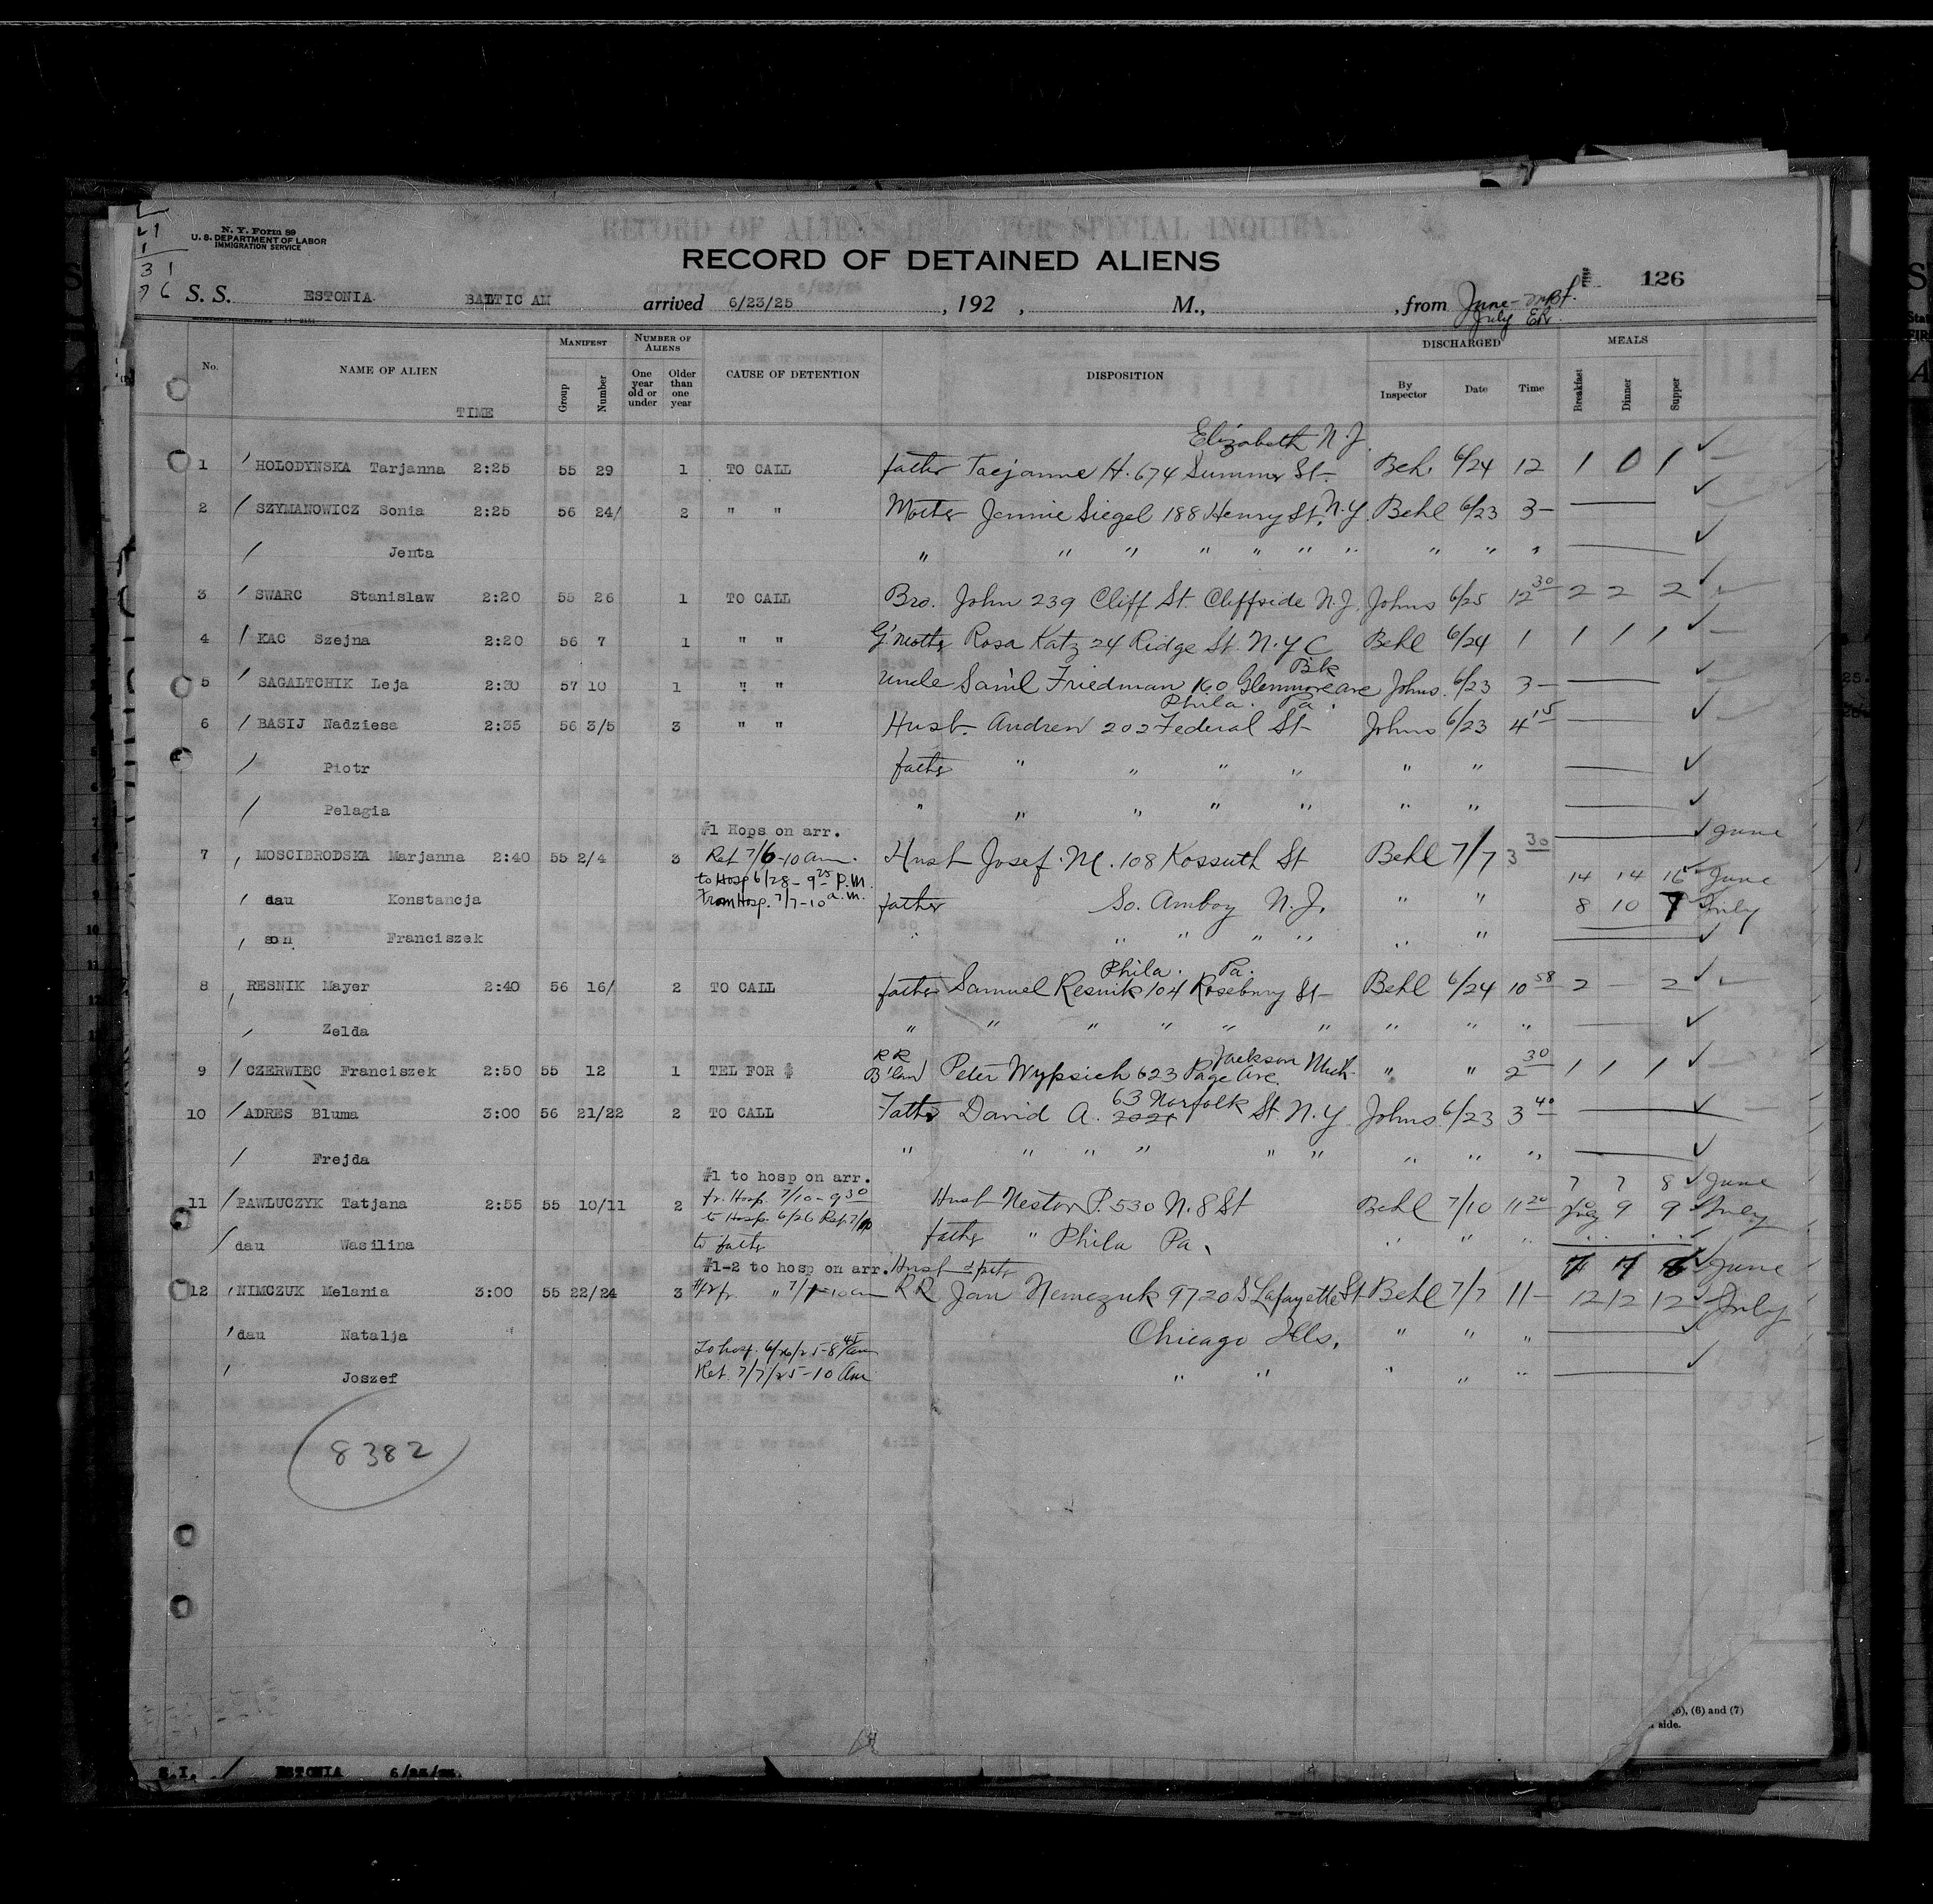 N. Y. Form 89
U. S. DEPARTMENT OF LABOR
IMMIGRATION SERVICE
RECORD OF ALIENS FOR SPECIAL INQUIRY.
RECORD OF DETAINED ALIENS
126
S. S. ESTONIA BALTIC AM arrived 6/23/25 , 192 , M., , from June-
July ER.
No. NAME OF ALIEN TIME MANIFEST Group Number NUMBER OF ALIENS One year old or under Older than one year CAUSE OF DETENTION DISPOSITION DISCHARGED By Inspector Date Time MEALS Breakfast Dinner Supper
Elizabeth N.J.
1 HOLODYNSKA Tarjanna 2:25 55 29 1 TO CALL father Tarjanne H. 674 Summer St- Behl 6/24 12 1 0 1
2 SZYMANOWICZ Sonia 2:25 56 24/ 2 " " Mother Jennie Siegel 188 Henry St. N.Y. Behl 6/23 3-
Jenta " " " " " " " " " "
3 SWARC Stanislaw 2:20 55 26 1 TO CALL Bro. John 239 Cliff St. Cliffside N.J. Johns 6/25 12 30 2 2 2
4 KAC Szejna 2:20 56 7 1 " " G'mother Rosa Katz 24 Ridge St. N.Y C Behl 6/24 1 1 1 1
Bk
5 SAGALTCHIK Leja 2:30 57 10 1 " " Uncle Sam'l Friedman 160 Glenmore ave Johns. 6/23 3-
Phila. Pa.
6 BASIJ Nadziesa 2:35 56 3/5 3 " " Husb. Andrew 202 Federal St- Johns 6/23 4 15
Piotr father " " " " " "
Pelagia " " " " " " "
#1 Hops on arr. June
7 MOSCIBRODSKA Marjanna 2:40 55 2/4 3 Ret 7/6-10 am. Husb Josef. M. 108 Kossuth St Behl 7/7 3 30
to Hosp 6/28- 9 25 P.M. 14 14 16 June
dau Konstancja From Hosp. 7/7-10 a.m. father So. Amboy N.J. " " 8 10 7 July
son Franciszek " " " " " " "
Phila. Pa.
8 RESNIK Mayer 2:40 56 16/ 2 TO CALL father Samuel Resnik 104 Rosebury St- Behl 6/24 10 58 2 - 2
Zelda " " " " " " " " "
RR Jackson Mich.
9 CZERWIEC Franciszek 2:50 55 12 1 TEL FOR $ B'law Peter Wypsich 623 Page Ave. " " 2 30 1 1 1
63 Norfolk
10 ADRES Bluma 3:00 56 21/22 2 TO CALL Father David A. St. N.Y Johns. 6/23 3 40
Frejda " " " " " " " " "
#1 to hosp on arr. 7 7 8 June
fr. Hosp. 7/10-9 30
11 PAWLUCZYK Tatjana 2:55 55 10/11 2 to Hosp. 6/26 Ret. 7/10 Husb Nestor P. 530 N. 8 St Behl 7/10 11 20 9 9 July
dau Wasilina to father father " Phila Pa. " " "
#1-2 to hosp on arr. Husb & father 7 7 8 June
12 NIMCZUK Melania 3:00 55 22/24 3 fr. " 7/1-10 am RR Jan Nemczuk 9720 S. Lafayette St Behl 7/7 11- 12 12 12 July
dau Natalja Chicago Ills. " " "
To hosp. 6/26/25-8 45 am
Joszef Ret. 7/7/25-10 Am " " " " "
8382
(5), (6) and (7)
side.
S.I. ESTONIA